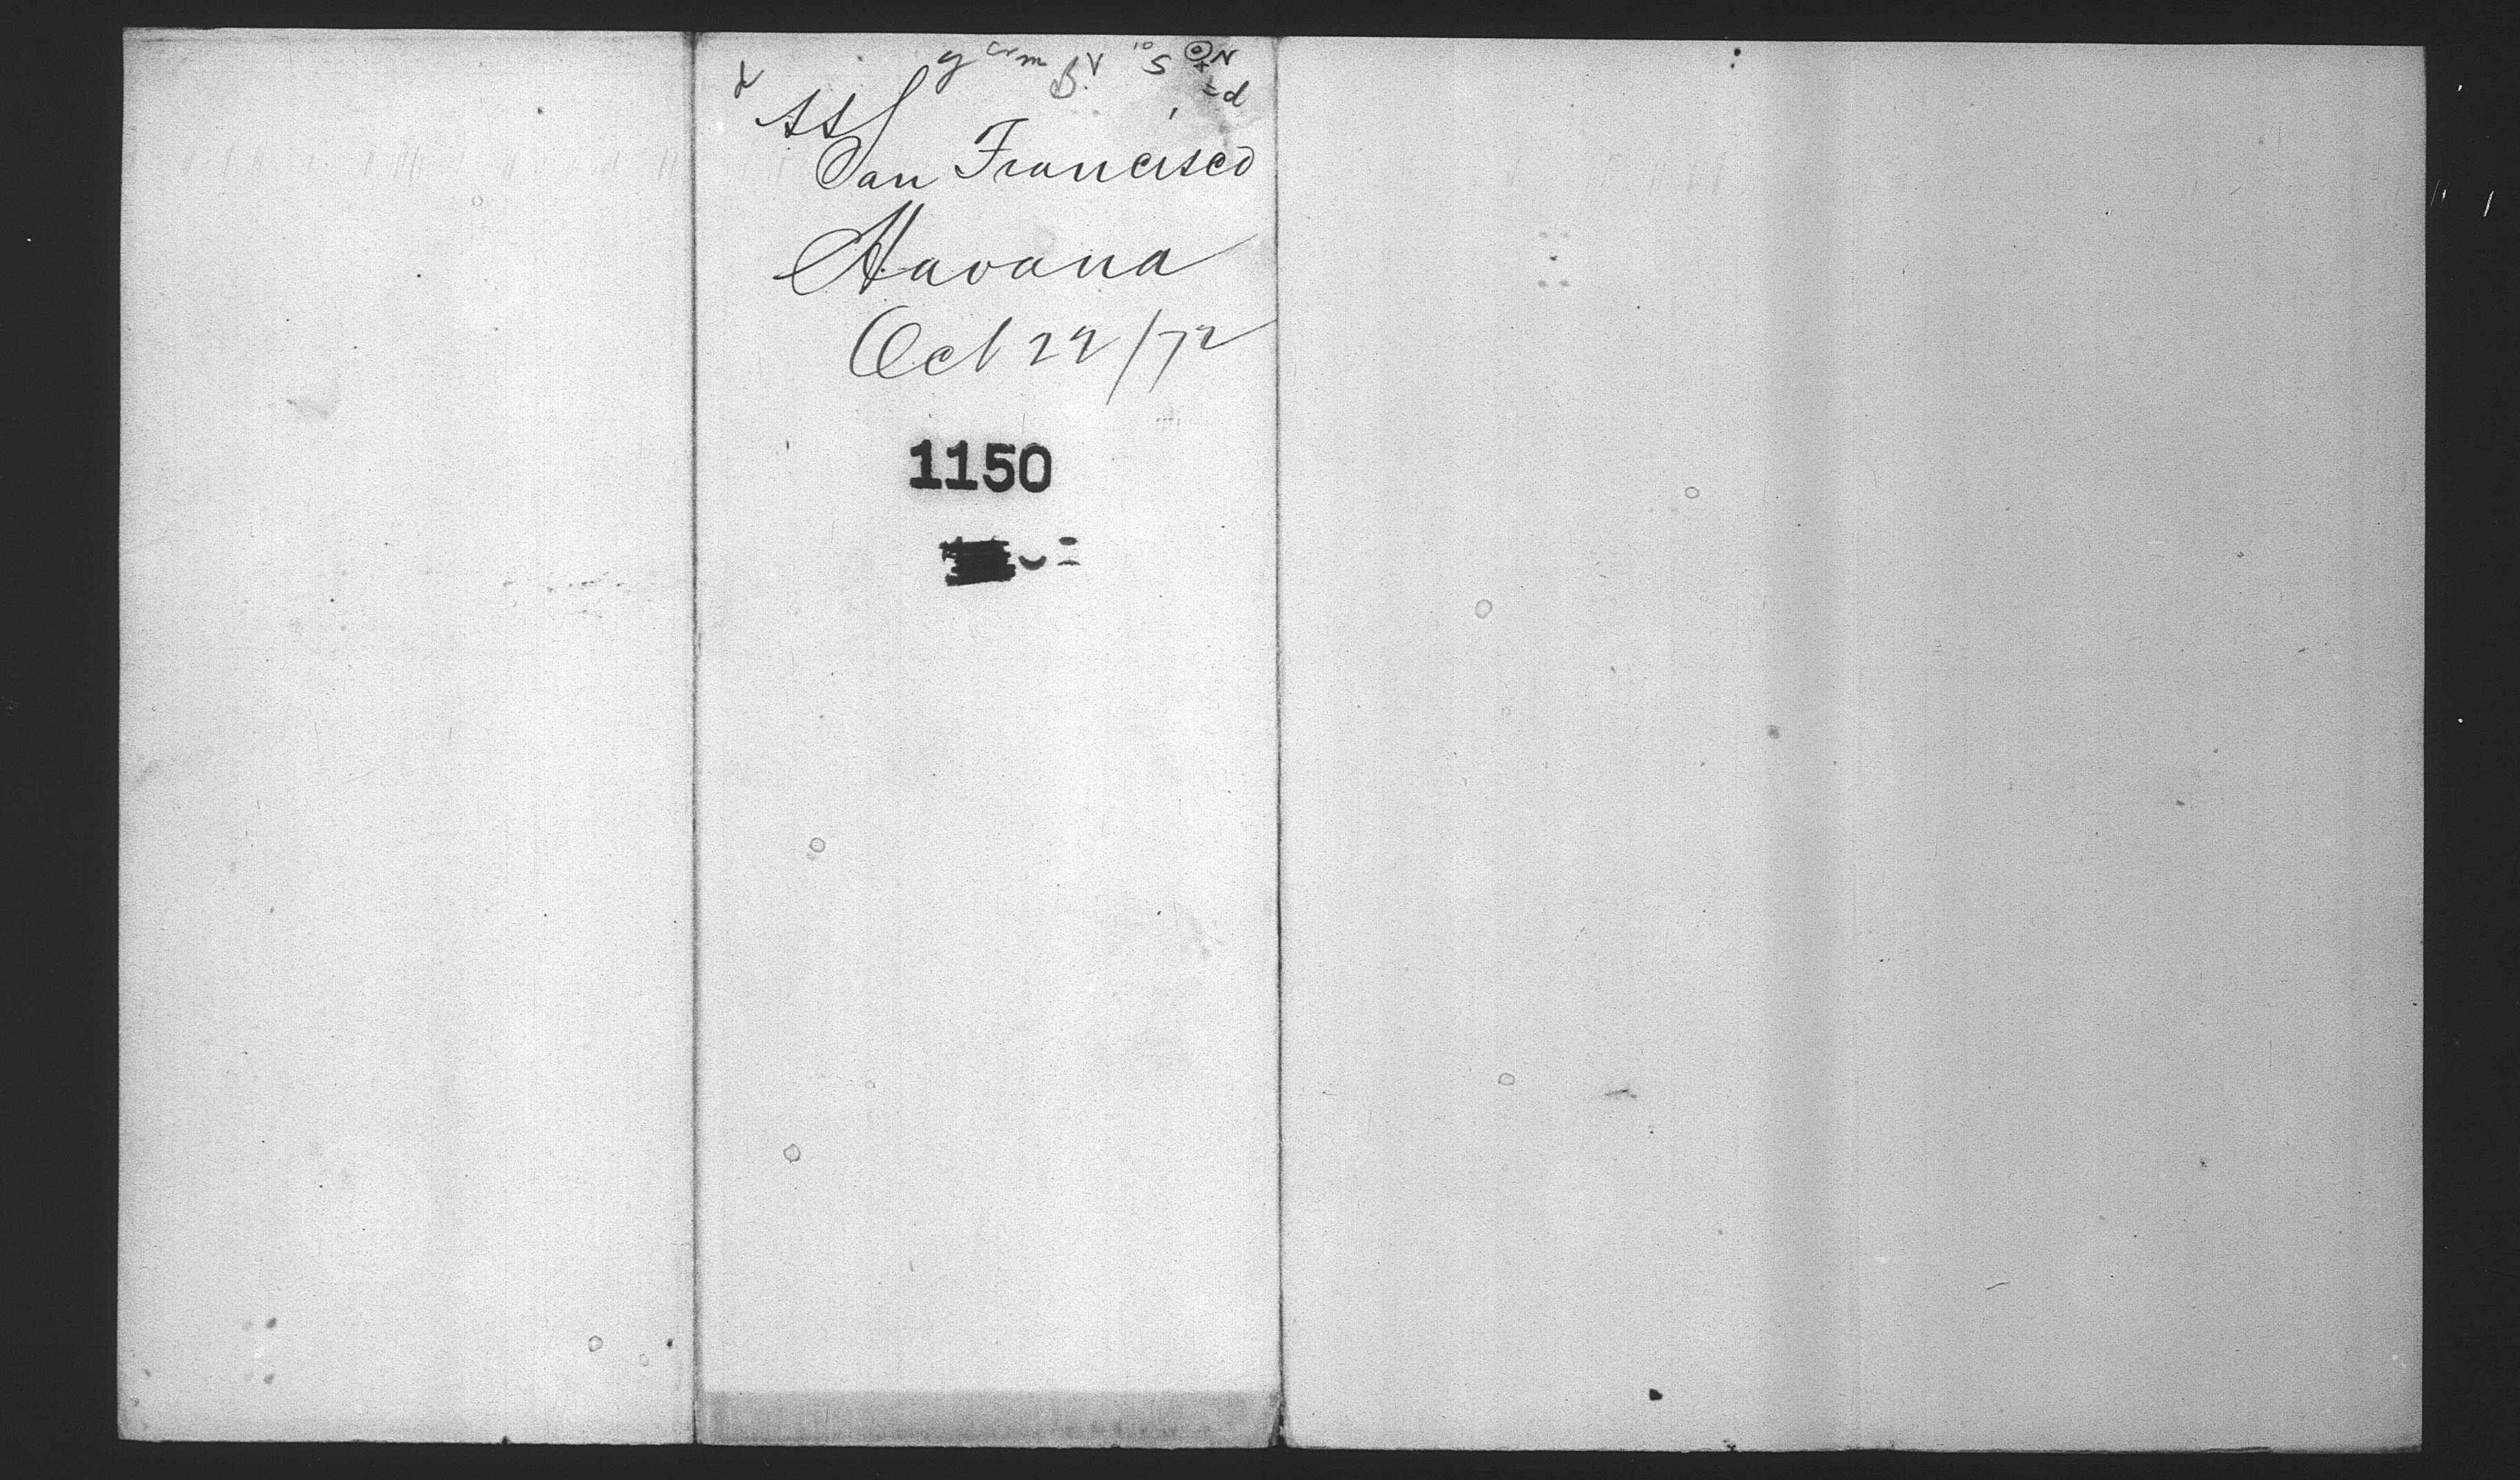 SS
San Francisco
Havana
Oct 22/72
1150